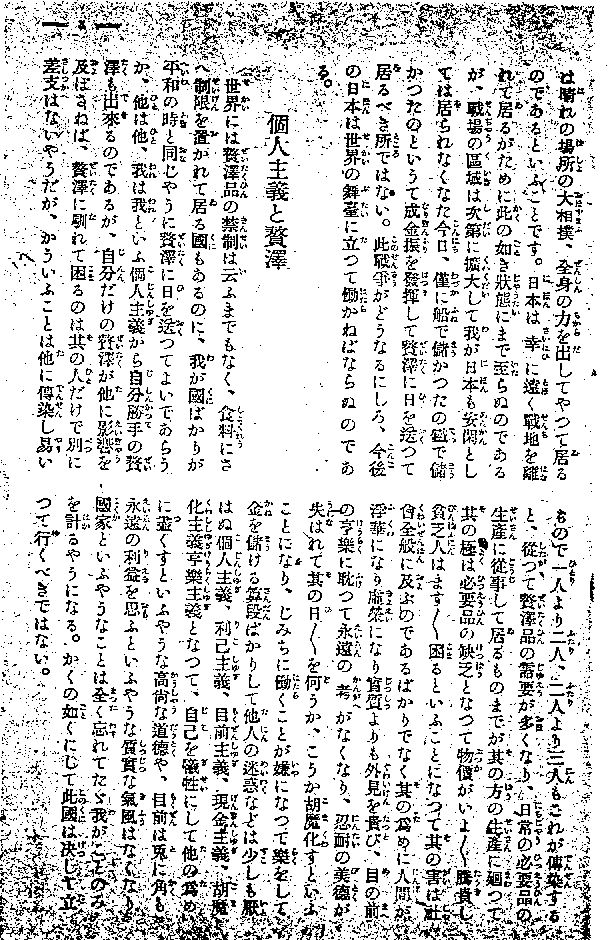 は晴れの場所の大相撲、全身の力を出してやつて居る
のであるといふことです。日本は幸に遠く戰地を離
れて居るがために此の如き狀態にまで至らぬのである
が、戰場の區域は次第に擴大して我が日本も安閑とし
ては居られなくなた今日、僅に船で儲かつたの 儲
かつたのというて成金振を發揮して贅澤に日を送つて
居るべき所ではない。此戰爭がどうなるにしろ、今後
の日本は世界の舞臺に立つて働かねばならぬのであ
る。
個人主義と贅澤
世界には贅澤品の禁制は云ふまでもなく、食料にさ
へ制限を置かれて居る國もあるのに、我が國ばかりが
平和の時と同じやうに贅澤に日を送つてよいであらう
か、他は他、我は我といふ個人主義から自分勝手の贅
澤も出來るのであるが、自分だけの贅澤が他に影響を
及ぼさねば、贅澤に馴れて困るのは其の人だけで別に
差支はないやうだが、かういふことは他に傳染し易い
もので一人より二人、二人より三人もこれが傳染する
と、從つて贅澤品の需要が多くなり、日常の必要品の
生產に從事して居るものまでが其の方の生產に廻つて
其の極は必要品の缺乏となつて物價がいよ〳〵騰貴し
貧乏人はます〳〵困るといふことになつて其の害は社
會全般に及ぶのであるばかりでなく其の爲めに人間が
浮華になり虛榮になり實質よりも外見を貴び、目の前
の享樂に耽つて永遠の考がなくなり、忍耐の美德が
失はれて其の日〳〵を何うか、こうか胡魔化すといふ
ことになり、じみちに働くことが嫌になつて樂をして
金を儲ける算段ばかりして他人の迷惑などは少しも厭
はぬ個人主義、利己主義、目前主義、現金主義、胡魔
化主義享樂主義となつて、自己を犧牲にして他の爲め
に盡くすといふやうな高尙な道德や、目前は兎に角も
永遠の利益を思ふといふやうな質實な氣風はなくなり
國家といふやうなことは全く忘れてたゞ我がことのみ
を計るやうになる。かくの如くにして此國は決して立
つて行くべきではない。